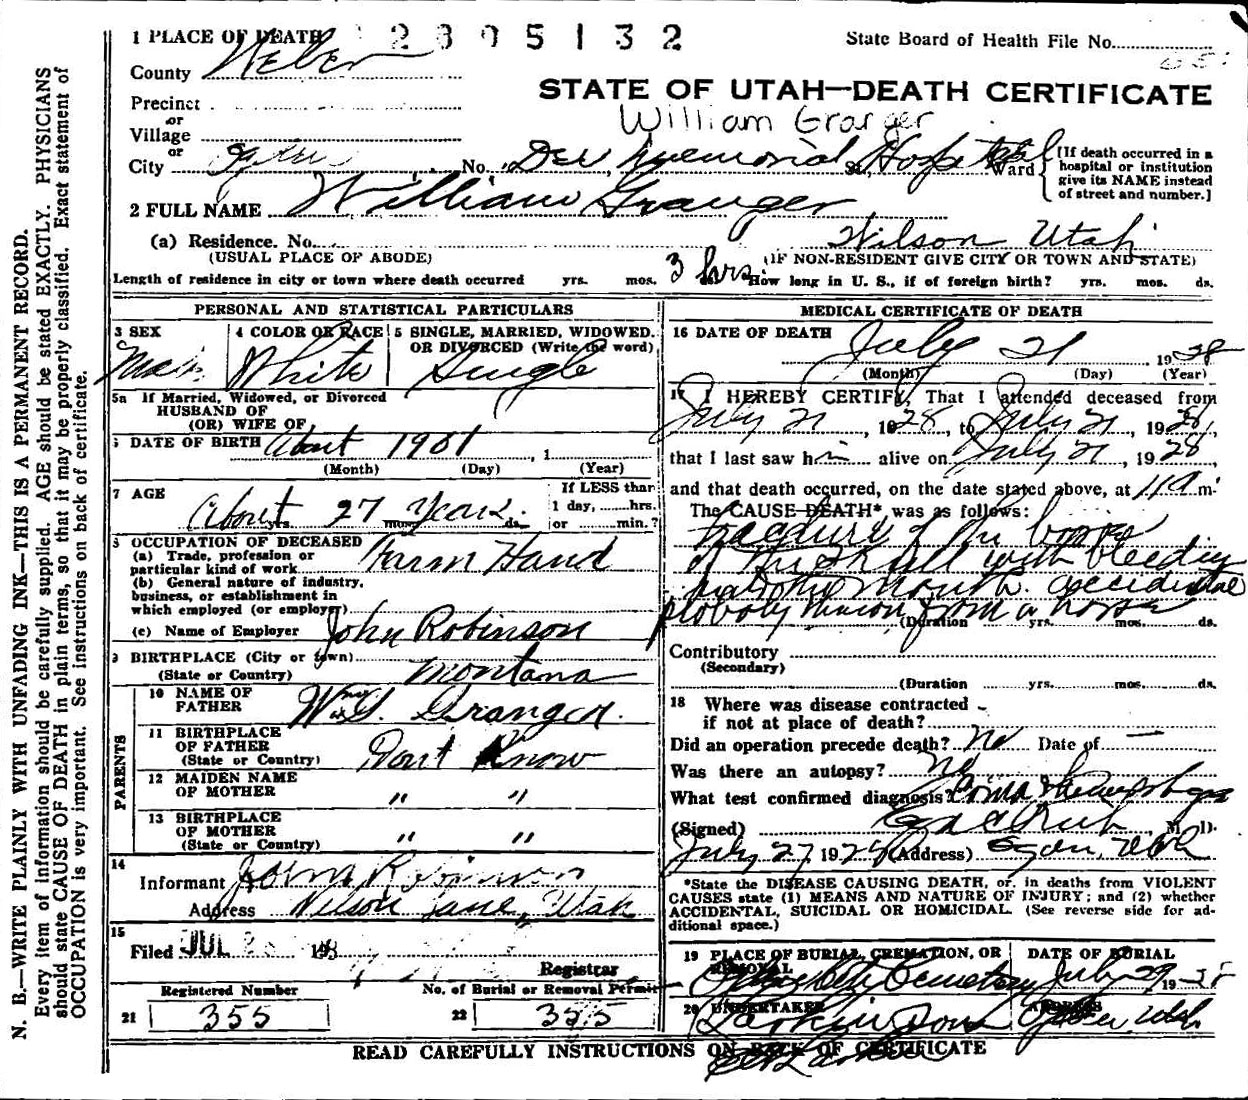 1 PLACE OF DEATH 2 8 0 5 1 3 2 State Board of Health File No.
County Weber
STATE OF UTAH—DEATH CERTIFICATE
Precinct
or
Village
William Granger
or
City No. Dee Memorial St., Hospital Ward
[If death occurred in a hospital or institution give its NAME instead of street and number.]
2 FULL NAME William Granger
(a) Residence. No. Wilson Utah
(USUAL PLACE OF ABODE) (IF NON-RESIDENT GIVE CITY OR TOWN AND STATE)
Length of residence in city or town where death occurred yrs. mos. 3 hrs ds. How long in U. S., if of foreign birth? yrs. mos. ds.
PERSONAL AND STATISTICAL PARTICULARS
3 SEX Male
4 COLOR OR RACE White
5 SINGLE, MARRIED, WIDOWED. OR DIVORCED (Write the word) Single
5a If Married, Widowed, or Divorced
HUSBAND OF
(OR) WIFE OF
6 DATE OF BIRTH About 1901 , 1
(Month) (Day) (Year)
7 AGE About 27 Years
yrs. mos. ds.
If LESS than
1 day, ......hrs.
or ......min.?
8 OCCUPATION OF DECEASED
(a) Trade, profession or
particular kind of work Farm Hand
(b) General nature of industry,
business, or establishment in
which employed (or employer)
(c) Name of Employer John Robinson
9 BIRTHPLACE (City or town)
(State or Country) Montana
PARENTS
10 NAME OF
FATHER Wm G. Granger.
11 BIRTHPLACE
OF FATHER
(State or Country) Dont Know
12 MAIDEN NAME
OF MOTHER " "
13 BIRTHPLACE
OF MOTHER
(State or Country) " "
14
Informant John Robinson
Address Wilson Lane, Utah
15
Filed JUL 19
Registrar
Registered Number No. of Burial or Removal Permit
21 355 22 355
MEDICAL CERTIFICATE OF DEATH
16 DATE OF DEATH July 21 1928
(Month) (Day) (Year)
17 I HEREBY CERTIFY, That I attended deceased from
July 21, 1928, to July 21, 1928,
that I last saw him alive on July 21, 1928,
and that death occurred, on the date stated above, at m.
The CAUSE DEATH* was as follows:
Fracture of the bones
of the skull with bleeding
mouth. accidental
probably thrown from a horse
(Duration yrs. mos. ds.
Contributory
(Secondary)
(Duration yrs. mos. ds.
18 Where was disease contracted
if not at place of death?
Did an operation precede death? No Date of —
Was there an autopsy? No
What test confirmed diagnosis?
(Signed) M. D.
July 27 1928 (Address) Ogden, Utah
*State the DISEASE CAUSING DEATH, or, in deaths from VIOLENT
CAUSES state (1) MEANS AND NATURE OF INJURY; and (2) whether
ACCIDENTAL, SUICIDAL OR HOMICIDAL. (See reverse side for ad-
ditional space.)
19 PLACE OF BURIAL, CREMATION, OR REMOVAL DATE OF BURIAL
Ogden City Cemetery July 29 1928
20 UNDERTAKER ADDRESS
Larkin Sons Ogden Utah
READ CAREFULLY INSTRUCTIONS ON BACK OF CERTIFICATE
N. B.—WRITE PLAINLY WITH UNFADING INK—THIS IS A PERMANENT RECORD.
Every item of information should be carefully supplied. AGE should be stated EXACTLY. PHYSICIANS
should state CAUSE OF DEATH in plain terms, so that it may be properly classified. Exact statement of
OCCUPATION is very important. See instructions on back of certificate.